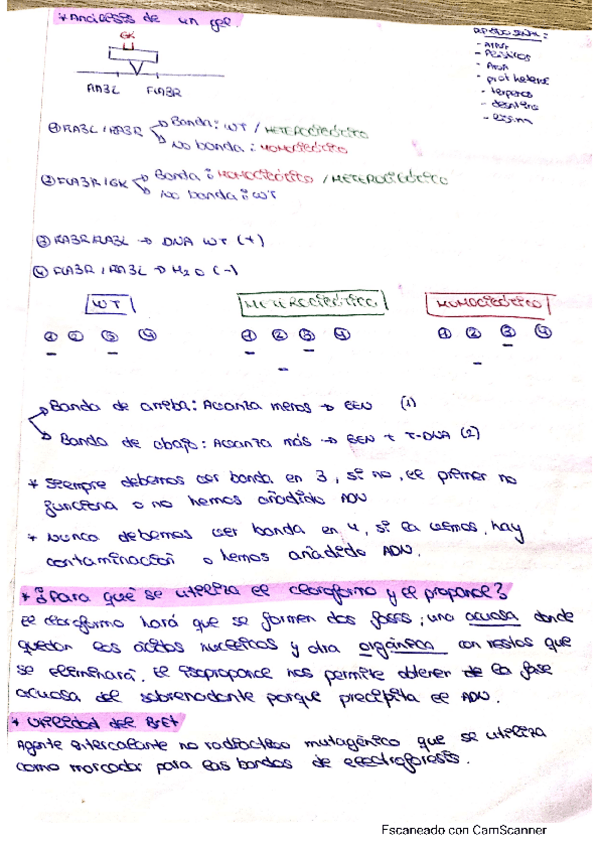 * Análisis de un gel
GK
RA3L FUA3R
① RA3L / RA3R Banda: WT / HETEROCIGÓTICO
No banda: HOMOCIGÓTICO
② FUA3R / GK Banda: HOMOCIGÓTICO / HETEROCIGÓTICO
No banda: WT
③ → DNA WT (+)
④ FUA3R / RA3L → H₂O (-)
WT HETEROCIGÓTICO HOMOCIGÓTICO
① ② ③ ④ ① ② ③ ④ ① ② ③ ④
Banda de arriba: Avanza menos → GEN (1)
Banda de abajo: Avanza más → GEN + T-DNA (2)
* Siempre debemos ver banda en 3, si no, el primer no
funciona o no hemos añadido ADN
* Nunca debemos ver banda en 4, si la vemos, hay
contaminación o hemos añadido ADN.
* ¿Para qué se utiliza el cloroformo y el propanol?
El cloroformo hará que se formen dos fases, una acuosa donde
quedan los ácidos nucleicos y otra orgánica con restos que
se eliminará. El isopropanol nos permite obtener de la fase
acuosa del sobrenadante porque precipita el ADN.
* Utilidad del BrEt
Agente intercalante no radiactivo mutagénico que se utiliza
como marcador para las bandas de electroforesis.
Escaneado con CamScanner